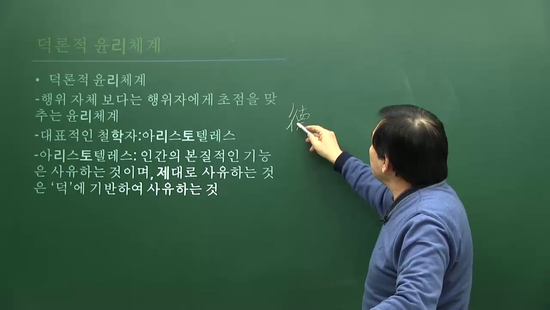 덕론적 윤리체계
• 덕론적 윤리체계
-행위 자체 보다는 행위자에게 초점을 맞
추는 윤리체계
-대표적인 철학자:아리스토텔레스
-아리스토텔레스: 인간의 본질적인 기능
은 사유하는 것이며, 제대로 사유하는 것
은 ‘덕’에 기반하여 사유하는 것
德